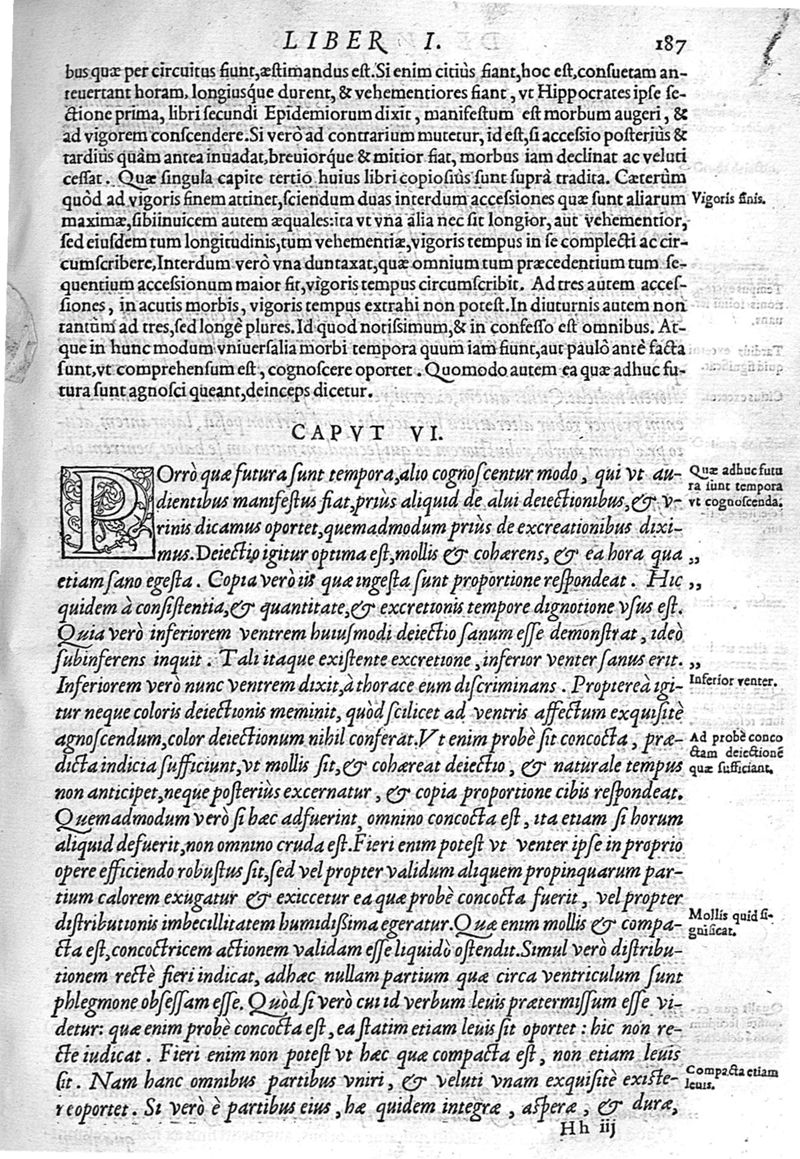 LIBER I. 187
bus quæ per circuitus fiunt, æstimandus est. Si enim citiùs fiant, hoc est, consuetam an-
teuertant horam, longiusque durent, & vehementiores fiant, vt Hippocrates ipse se-
ctione prima, libri secundi Epidemiorum dixit, manifestum est morbum augeri, &
ad vigorem conscendere. Si verò ad contrarium mutetur, id est, si accessio posterius &
tardiùs quàm antea inuadat, breuiorque & mitior fiat, morbus iam declinat ac veluti
cessat. Quæ singula capite tertio huius libri copiosiùs sunt suprà tradita. Cæterùm
quòd ad vigoris finem attinet, sciendum duas interdum accessiones quæ sunt aliarum
Vigoris finis.
maximæ, sibiinuicem autem æquales: ita vt vna alia nec sit longior, aut vehementior,
sed eiusdem tum longitudinis, tum vehementiæ, vigoris tempus in se complecti ac cir-
cumscribere, Interdum verò vna duntaxat, quæ omnium tum præcedentium tum se-
quentium accessionum maior sit, vigoris tempus circumscribit. Ad tres autem acces-
siones, in acutis morbis, vigoris tempus extrahi non potest. In diuturnis autem non
tantùm ad tres, sed longè plures. Id quod notissimum, & in confesso est omnibus. At-
que in hunc modum vniuersalia morbi tempora quum iam fiunt, aut paulò antè facta
sunt, vt comprehensum est, cognoscere oportet. Quomodo autem ea quæ adhuc fu-
tura sunt agnosci queant, deinceps dicetur.
CAPVT VI.
POrrò quæ futura sunt tempora, alio cognoscentur modo, qui vt au-
Quæ adhuc futu
dientibus manifestus fiat, priùs aliquid de alui deiectionibus, & v-
ra sunt tempora
rinis dicamus oportet, quemadmodum priùs de excreationibus dixi-
vt cognoscenda.
mus. Deiectio igitur optima est, mollis & cohærens, & ea hora qua „
etiam sano egesta. Copia verò iis quæ ingesta sunt proportione respondeat. Hic „
quidem à consistentia, & quantitate, & excretionis tempore dignotione vsus est.
Quia verò inferiorem ventrem huiusmodi deiectio sanum esse demonstrat, ideò
subinferens inquit. Tali itaque existente excretione, inferior venter sanus erit. „
Inferiorem verò nunc ventrem dixit, à thorace eum discriminans. Propiereà igi-
Inferior venter.
tur neque coloris deiectionis meminit, quòd scilicet ad ventris affectum exquisitè
agnoscendum, color deiectionum nihil conferat. Vt enim probè sit concocta, præ-
Ad probè conco
dicta indicia sufficiunt, vt mollis sit, & cohæreat deiectio, & naturale tempus
ctam deiectionē
quæ sufficiant.
non anticipet, neque posteriùs excernatur, & copia proportione cibis respondeat.
Quemadmodum verò si hæc adfuerint, omnino concocta est, ita etiam si horum
aliquid defuerit, non omnino cruda est. Fieri enim potest vt venter ipse in proprio
opere efficiendo robustus sit, sed vel propter validum aliquem propinquarum par-
tium calorem exugatur & exiccetur ea quæ probè concocta fuerit, vel propter
distributionis imbecillitatem humidißima egeratur. Quæ enim mollis & compa-
Mollis quid si-
gnificat.
cta est, concoctricem actionem validam esse liquidò ostendit. Simul verò distribu-
tionem rectè fieri indicat, adhæc nullam partium quæ circa ventriculum sunt
phlegmone obsessam esse. Quòd si verò cui id verbum leuis prætermissum esse vi-
detur: quæ enim probè concocta est, ea statim etiam leuis sit oportet: hic non re-
ctè iudicat. Fieri enim non potest vt hæc quæ compacta est, non etiam leuis
sit. Nam hanc omnibus partibus vniri, & veluti vnam exquisitè existe-
Compacta etiam
leuis.
re oportet. Si verò è partibus eius, hæ quidem integræ, asperæ, & duræ,
Hh iij